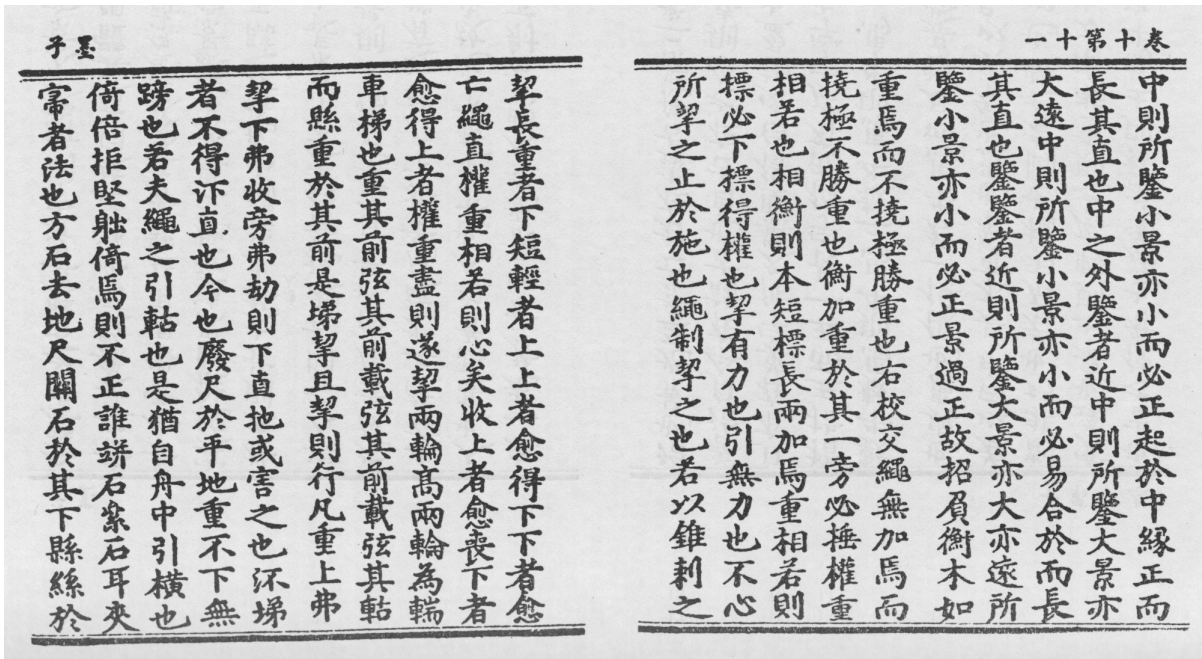 卷十第十一
中則所鑒小景亦小而必正起於中緣正而
長其直也中之外鑒者近中則所鑒大景亦
大遠中則所鑒小景亦小而必易合於而長
其直也鑒鑒者近則所鑒大景亦大亦遠所
鑒小景亦小而必正景過正故招負衡木如
重焉而不撓極勝重也右校交繩無加焉而
撓極不勝重也衡加重於其一旁必捶權重
相若也相衡則本短標長兩加焉重相若則
標必下標得權也挈有力也引無力也不心
所挈之止於施也繩制挈之也若以錐刺之
墨子
挈長重者下短輕者上上者愈得下下者愈
亡繩直權重相若則心矣收上者愈喪下者
愈得上者權重盡則遂挈兩輪高兩輪為輲
車梯也重其前弦其前載弦其前載弦其軲
而縣重於其前是梯挈且挈則行凡重上弗
挈下弗收旁弗劫則下直扡或害之也㳅梯
者不得㳅直也今也廢尺於平地重不下無
䠙也若夫繩之引軲也是猶自舟中引橫也
倚倍拒堅䠳倚焉則不正誰竮石絫石耳夾
㝛者法也方石去地尺關石於其下縣絲於